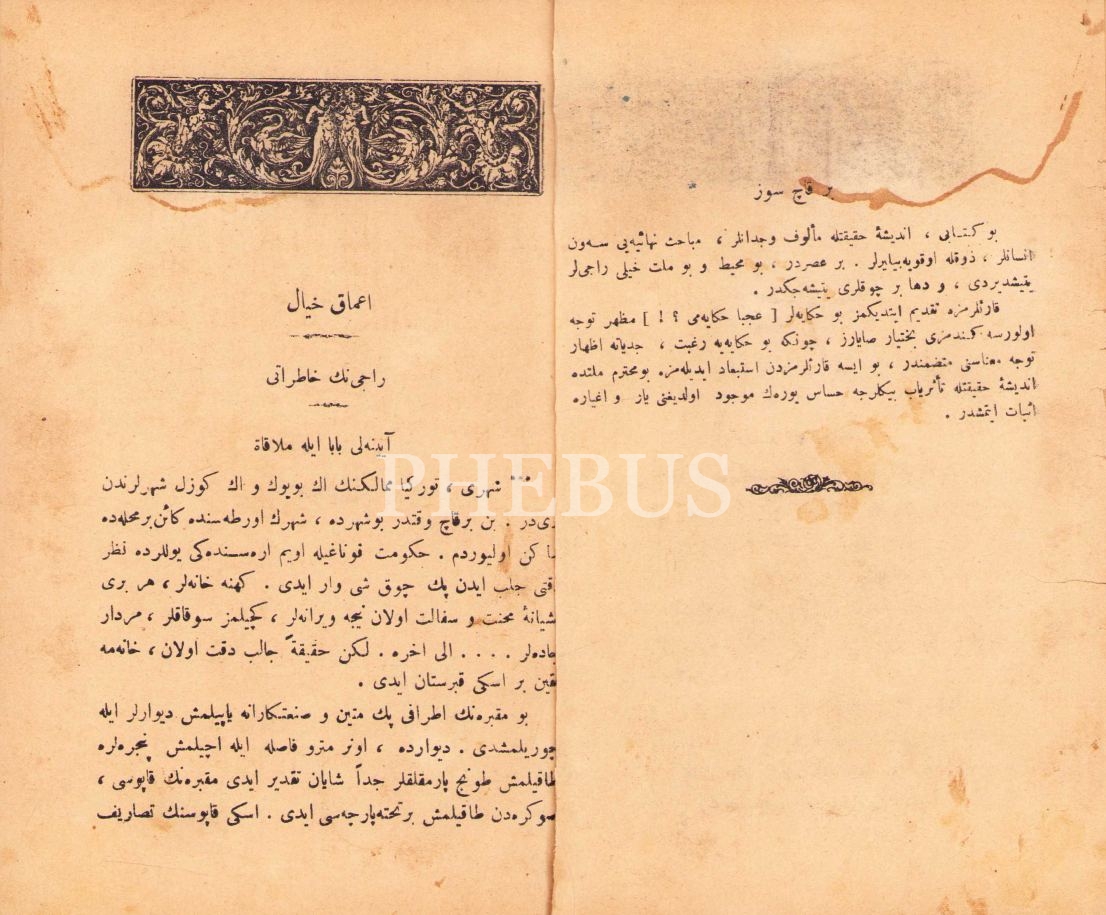 بر قاچ سوز
بو كتابی ، اندیشهٔ حقیقتله مألوف وجدانلر ، مباحث نهائیه‌یی سه‌ون
انسانلر ، ذوقله اوقویه‌بیلیرلر . بر عصردر ، بو محیط و بو ملت خیلی راجی‌لر
یتیشدیردی ، و دها بر چوقلری یتیشه‌جكدر .
قارئلرمزه تقدیم ایتدیكمز بو حكایه‌لر [ عجبا حكایه‌می ؟ ! ] مظهر توجه
اولورسه كندمزی بختیار صایارز ، چونكه بو حكایه‌یه رغبت ، جدیاته اظهار
توجه معناسنی متضمندر ، بو ایسه قارئلرمزدن استبعاد ایدیله‌مزه بومحترم ملتده
اندیشهٔ حقیقتله تأثریاب بیكلرجه حساس یورەك موجود اولدیغنی یار و اغیاره
اثبات ایتمشدر .
اعماق خیال
راجی‌نك خاطراتی
آینه‌لی بابا ایله ملاقاة
*** شهری ، توركیا ممالكنك اك بویوك و اك كوزل شهرلرندن
ری‌در . بن برقاچ وقتدر بوشهرده ، شهرك اورطه‌سنده كائن‌برمحله‌ده
ساكن اولیوردم . حكومت قوناغیله اویم اره‌سنده‌كی یوللرده نظر
دقتی جلب ایدن پك چوق شی وار ایدی . كهنه خانه‌لر ، هر بری
شیانهٔ محنت و سفالت اولان نیجه ویرانه‌لر ، كچیلمز سوقاقلر ، مردار
جاده‌لر . . . . الی اخره . لكن حقیقةً جالب دقت اولان ، خانه‌مه
یقین بر اسكی قبرستان ایدی .
بو مقبره‌نك اطرافی پك متین و صنعتكارانه یاپیلمش دیوارلر ایله
چوریلمشدی . دیوارده ، اونر مترو فاصله ایله اچیلمش پنجره‌لره
طاقیلمش طونج پارمقلقلر جداً شایان تقدیر ایدی مقبره‌نك قاپوسی ،
صوكره‌دن طاقیلمش برتخته‌پارچه‌سی ایدی . اسكی قاپوسنك تصاریف
PHEBUS